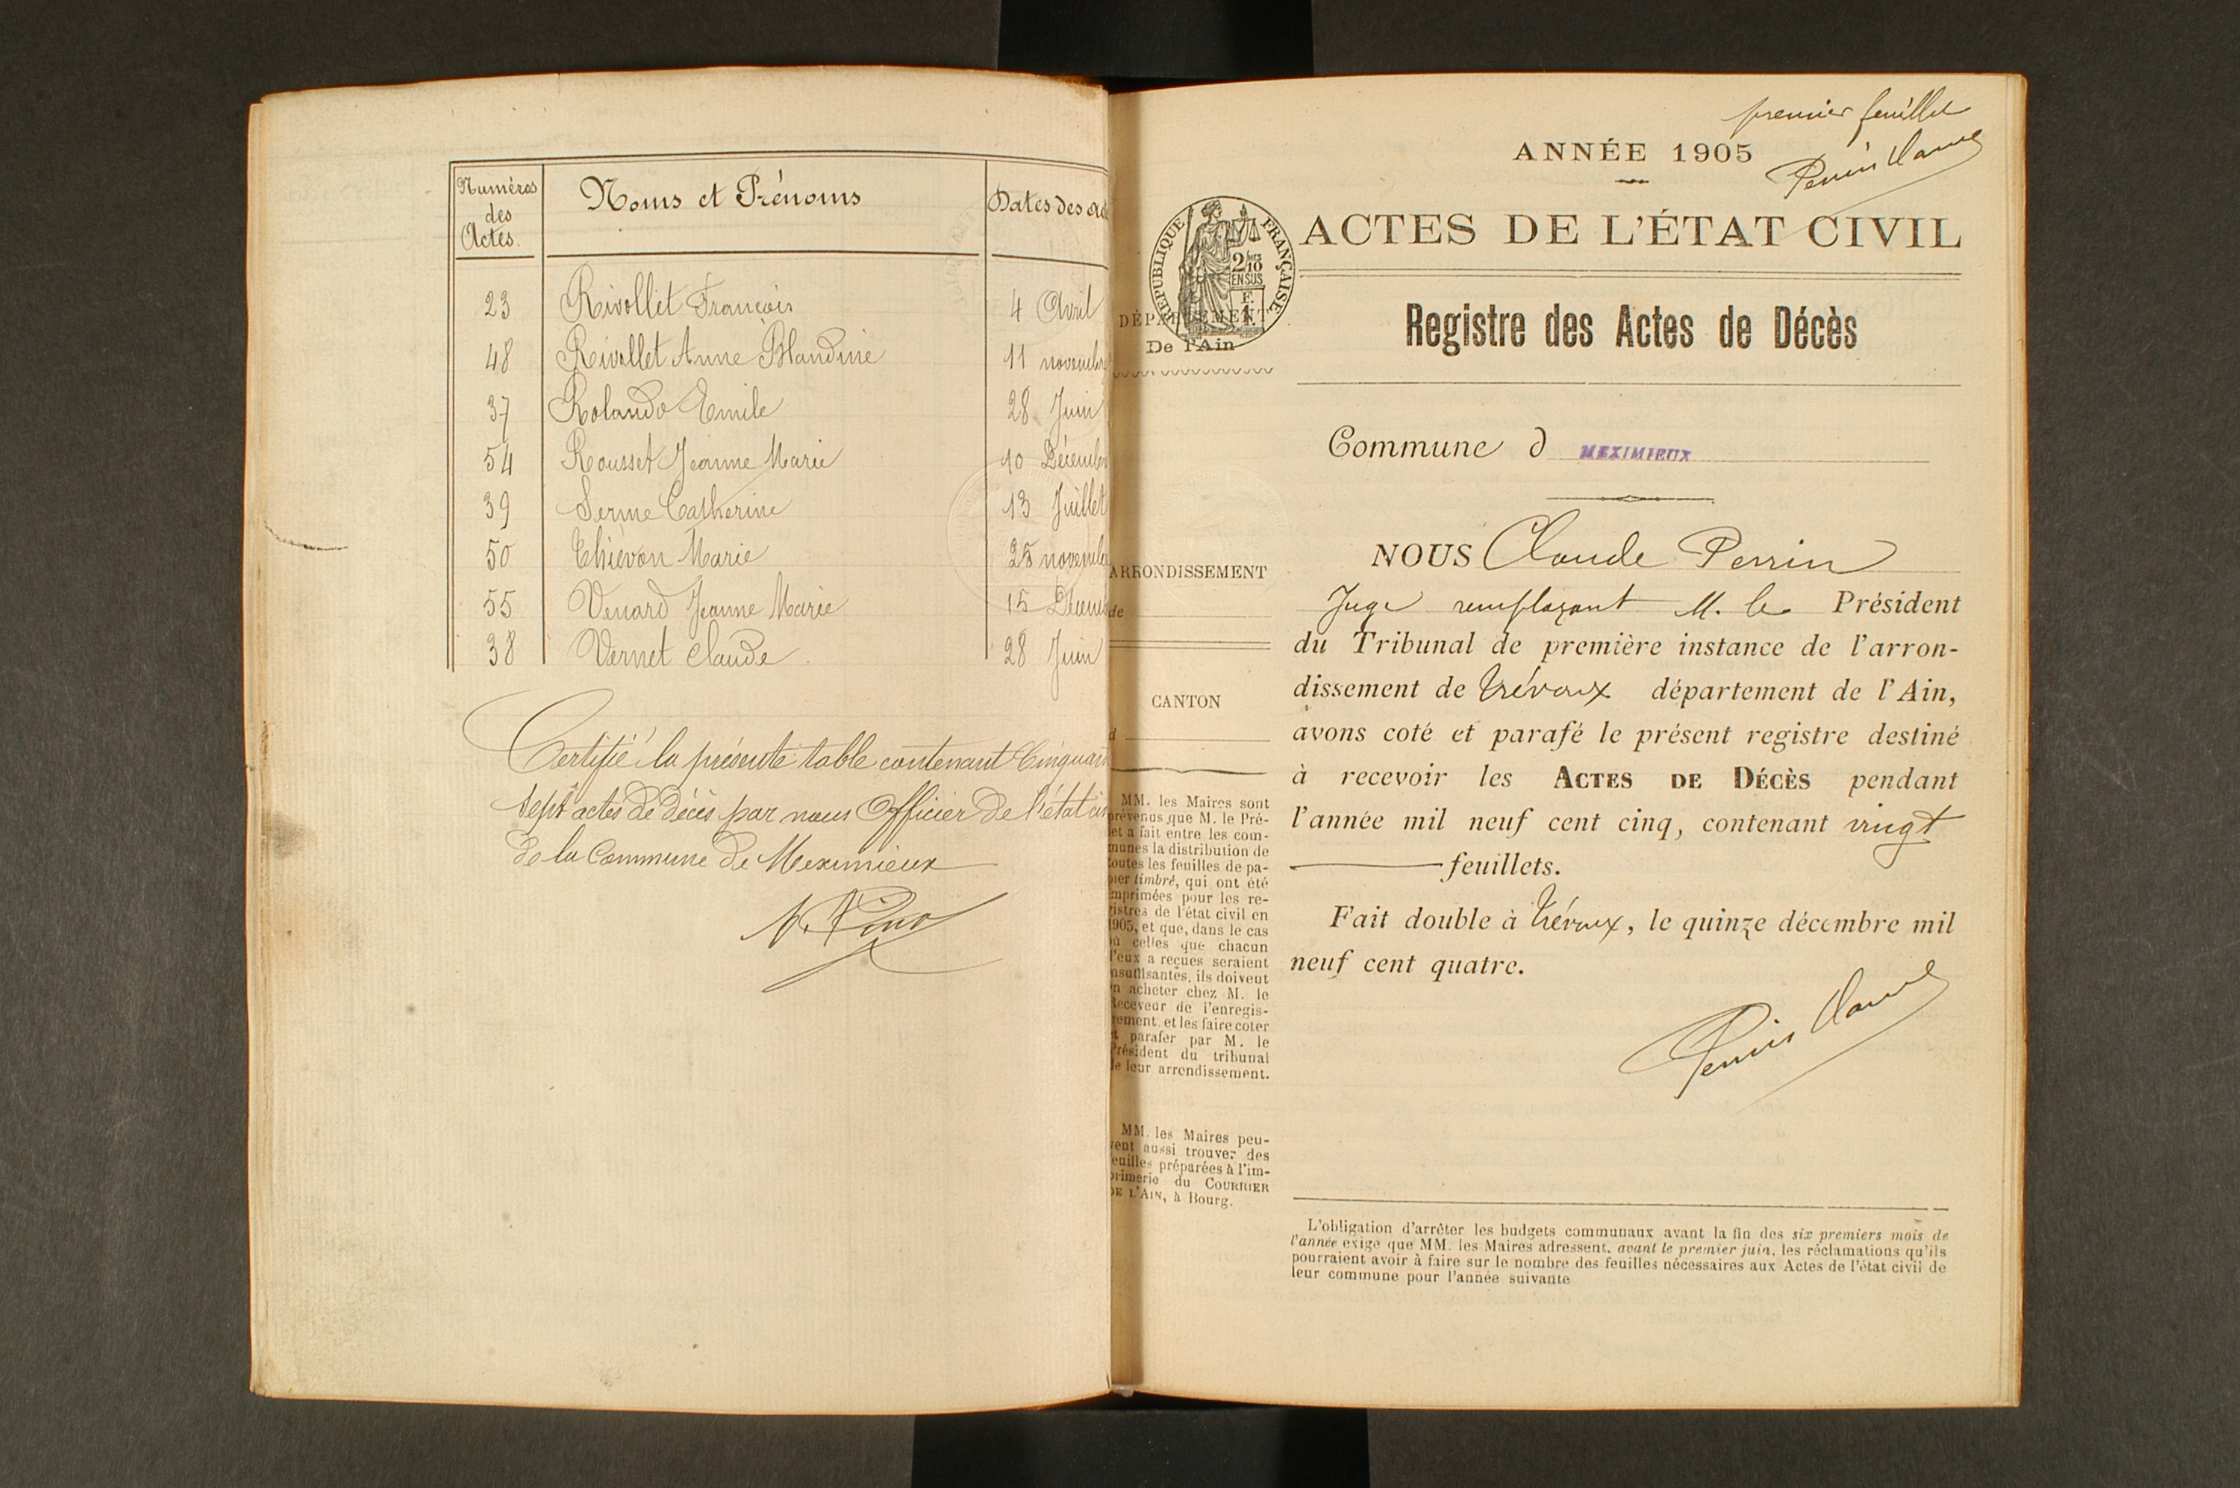 Numéros des Actes. Noms et Prénoms Dates des Ac
23 Rivollet François 4 Avril
48 Rivollet Anne Blandine 11 novembre
37 Rolando Emile 28 Juin
54 Rousset Jeanne Marie 10 Décembre
39 Serme Catherine 13 Juillet
50 Thiévon Marie 25 novembre
55 Venard Jeanne Marie 15 Décem
38 Vernet Claude 28 Juin
Certifié la présente table contenant Cinquante
sept actes de décès par nous Officier de l'état civ
de la Commune de Meximieux
premier feuillet
ANNÉE 1905
Perrin Claude
ACTES DE L'ÉTAT CIVIL
RÉPUBLIQUE FRANÇAISE
2/10 EN SUS
F. 1
DÉPARTEMENT
De l'Ain
Registre des Actes de Décès
Commune d MEXIMIEUX
ARRONDISSEMENT
de
CANTON
d
MM. les Maires sont
prévenus que M. le Pré-
fet a fait entre les com-
munes la distribution de
toutes les feuilles de pa-
pier timbré, qui ont été
imprimées pour les re-
gistres de l'état civil en
1905, et que, dans le cas
où celles que chacun
d'eux a reçues seraient
insuffisantes, ils doivent
en acheter chez M. le
Receveur de l'enregis-
rement et les faire coter
et parafer par M. le
Président du tribunal
de leur arrondissement.
MM. les Maires peu-
vent aussi trouver des
feuilles préparées à l'im-
primerie du COURRIER
DE L'AIN, à Bourg.
NOUS Claude Perrin
Juge remplaçant M. le Président
du Tribunal de première instance de l'arron-
dissement de Trévoux département de l'Ain,
avons coté et parafé le présent registre destiné
à recevoir les ACTES DE DÉCÈS pendant
l'année mil neuf cent cinq, contenant vingt
feuillets.
Fait double à Trévoux, le quinze décembre mil
neuf cent quatre.
Perrin Claude
L'obligation d'arrêter les budgets communaux avant la fin des six premiers mois de
l'année exige que MM. les Maires adressent, avant le premier juin, les réclamations qu'ils
pourraient avoir à faire sur le nombre des feuilles nécessaires aux Actes de l'état civil de
leur commune pour l'année suivante